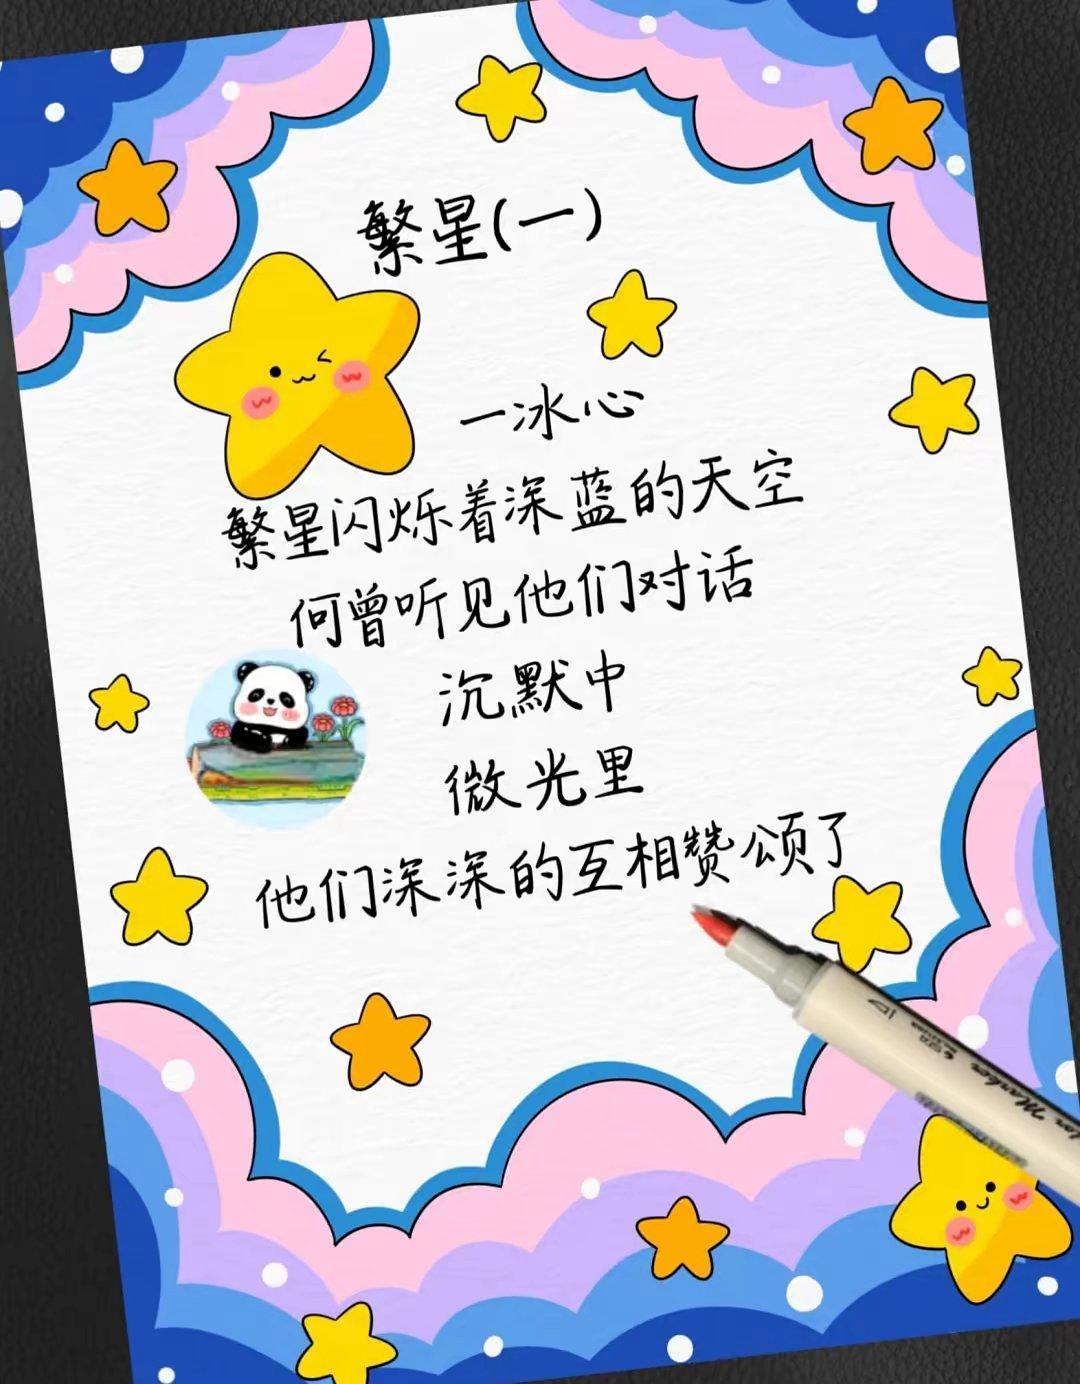 繁星(一)
一冰心
繁星闪烁着深蓝的天空
何曾听见他们对话
沉默中
微光里
他们深深的互相赞颂了
Marker